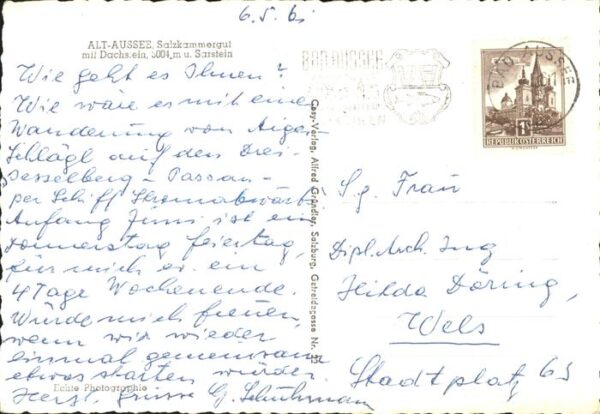 6.5.61
ALT-AUSSEE, Salzkammergut
mit Dachstein, 3004 m u. Sarstein
Wie geht es Ihnen?
Wie wäre es mit einer
Wanderung von Aigen
Schlägl auf den Drei-
sesselberg - Passau -
per Schiff Stromabwärts
Anfang Juni ist ein
Donnerstag feiertag,
für mich er. ein
4 Tage Wochenende.
Würde mich freuen,
wenn wir wieder
einmal gemeinsam
etwas starten würden.
Herzl. Grüsse G. Schuhmann
Echte Photographie
Cosy-Verlag, Alfred Gründler, Salzburg, Getreidegasse Nr. 22
BAD AUSSEE
BAD AUSSEE
1 S
REPUBLIK ÖSTERREICH
Sg. Frau
Dipl. Arch. Ing
Hilda Döring,
Wels
Stadtplatz 63